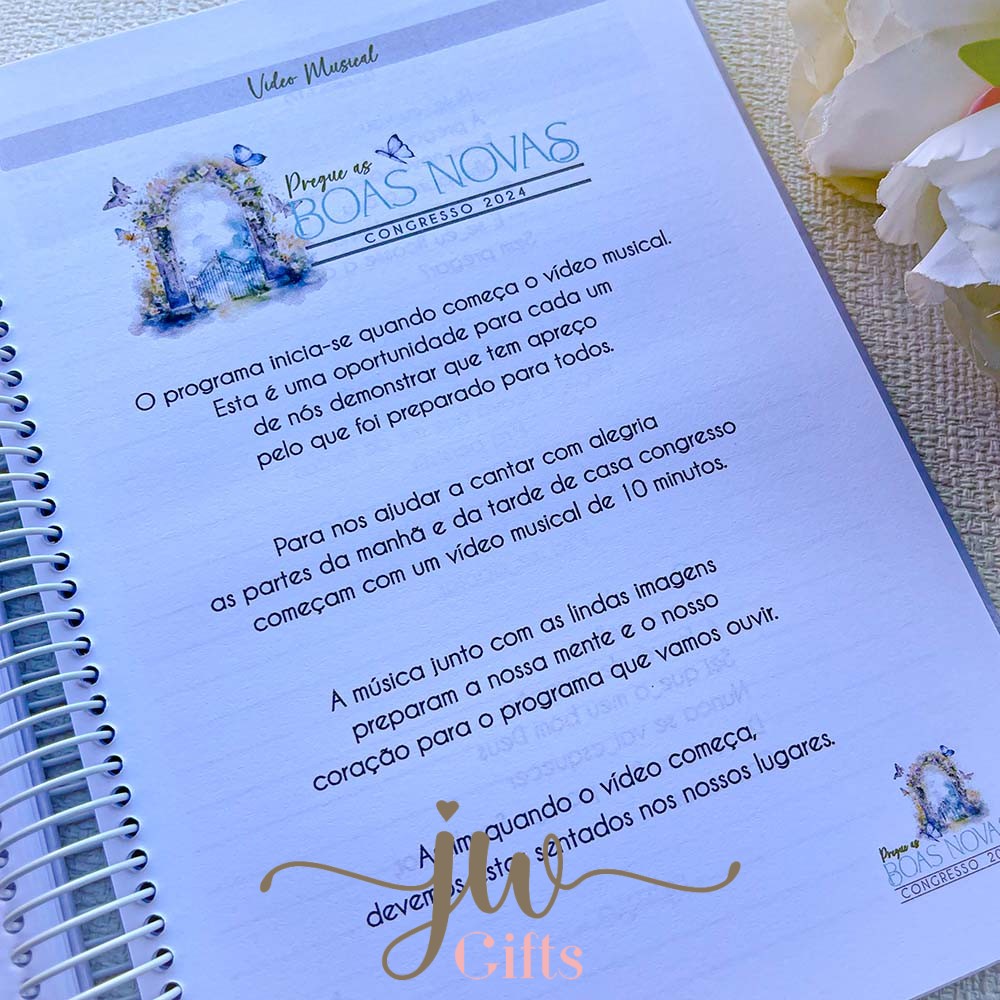 Vídeo Musical
Pregue as
BOAS NOVAS
CONGRESSO 2024
O programa inicia-se quando começa o vídeo musical.
Esta é uma oportunidade para cada um
de nós demonstrar que tem apreço
pelo que foi preparado para todos.
Para nos ajudar a cantar com alegria
as partes da manhã e da tarde de casa congresso
começam com um vídeo musical de 10 minutos.
A música junto com as lindas imagens
preparam a nossa mente e o nosso
coração para o programa que vamos ouvir.
quando o vídeo começa,
devemos estar sentados nos nossos lugares.
Pregue as
BOAS NOVA
CONGRESSO 20
jw
Gifts